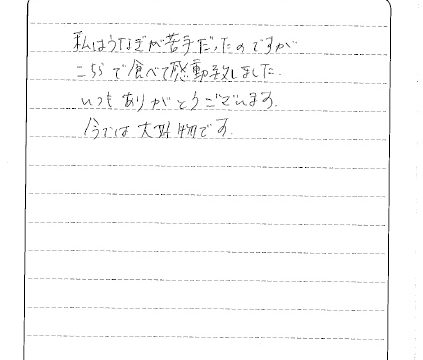 私はうなぎが苦手だったのですが
こちらで食べて感動致しました.
いつもありがとうございます.
今では大好物です.